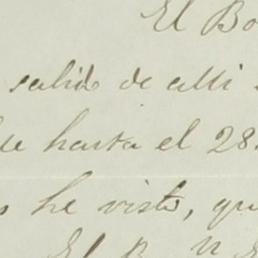 El Bo
salido de alli
de hasta el 28
s he visto, qu
El B